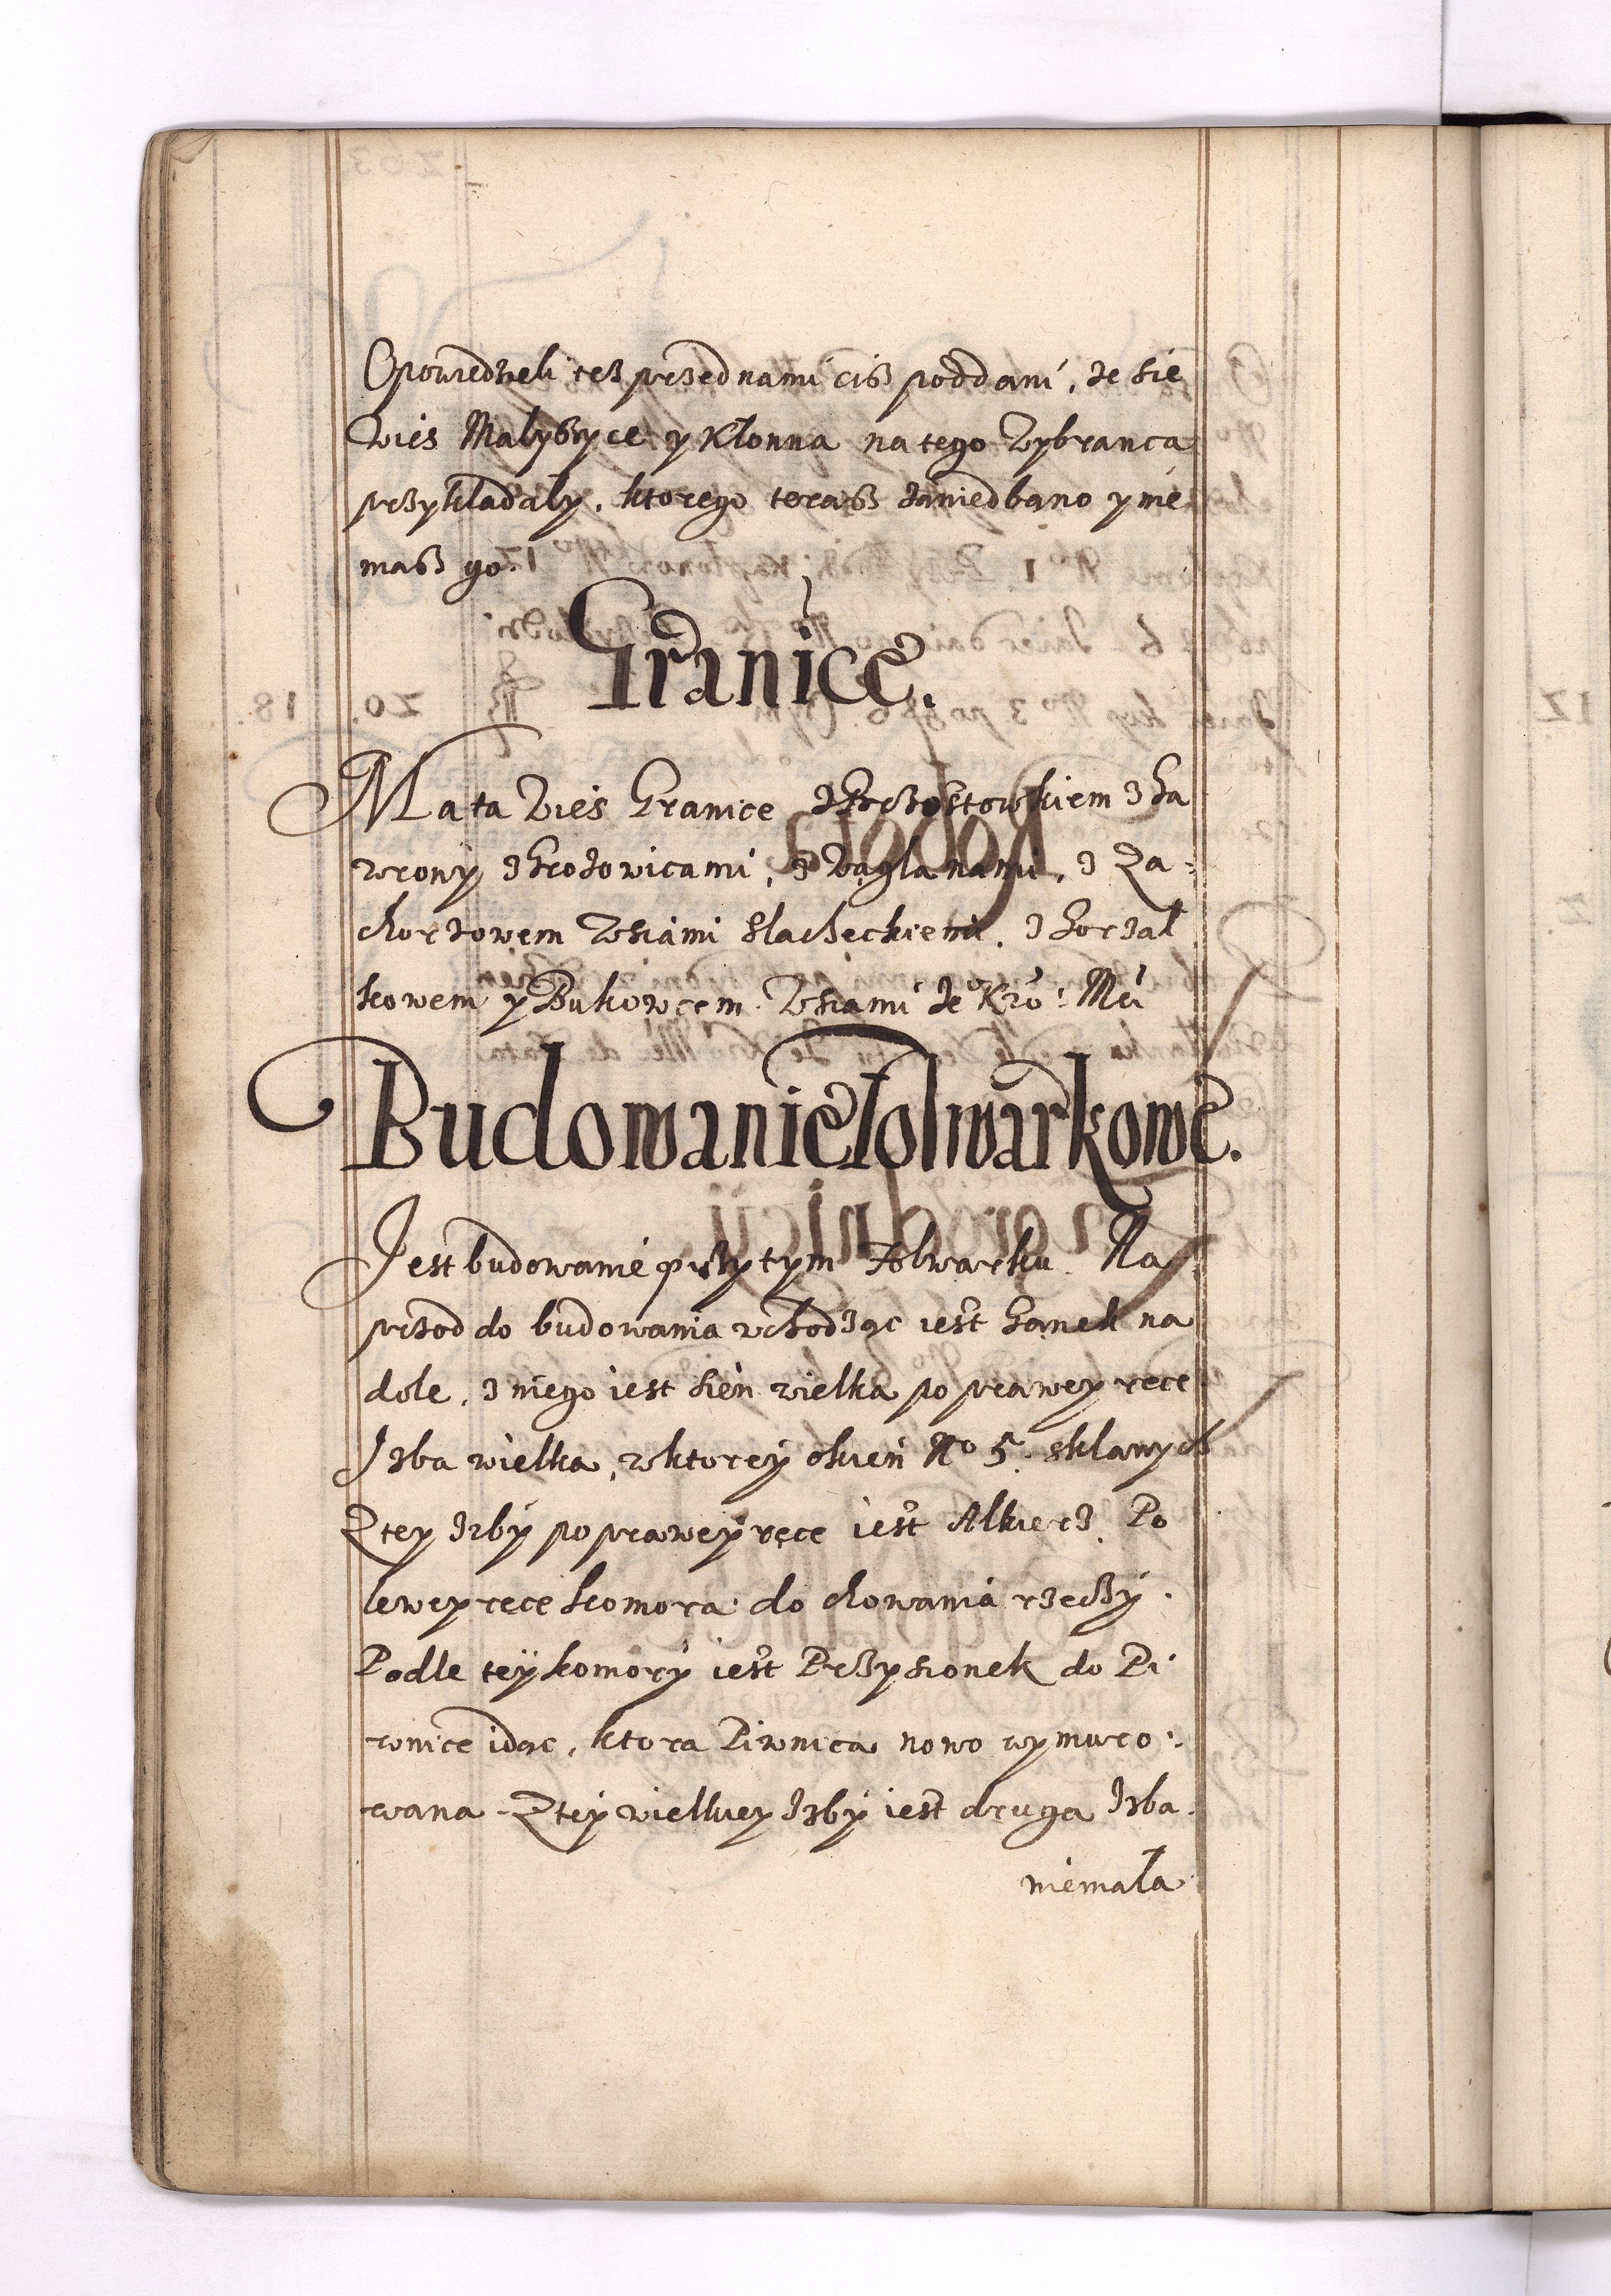 Opowiedzieli tesz przednami cisz poddani, że sie
Wies Malyszyce y Klonna na tego Wybranca
przykladaly, ktorego terasz zaniedbano y nie
masz go.
Granice.
Ma ta Wies Granice z z Ga
wrony z Grotowicami, z Waglanami, z Za:
chorzowem Wsiami slacheckiemi, z Gorzal
kowem y Bukowcem Wsiami Je° Kró: Mci
Budowanie folwarkowe.
Jest budowanie przy tym folwarku. Na
przod do budowania wchodząc iest Ganek na
dole, z niego iest sień wielka po prawey rece
Izba wielka, w ktorey okien N° 5. sklanych
Z tey Izby po prawey ręce iest Alkierz. Po
lewey rece komora do chowania rzeczy.
Podle tey komory iest Przysionek do Pi:
wnice idąc, ktora Piwnica nowo wymuro:
wana. Z tey wielkiey Izby iest druga Izba
niemała